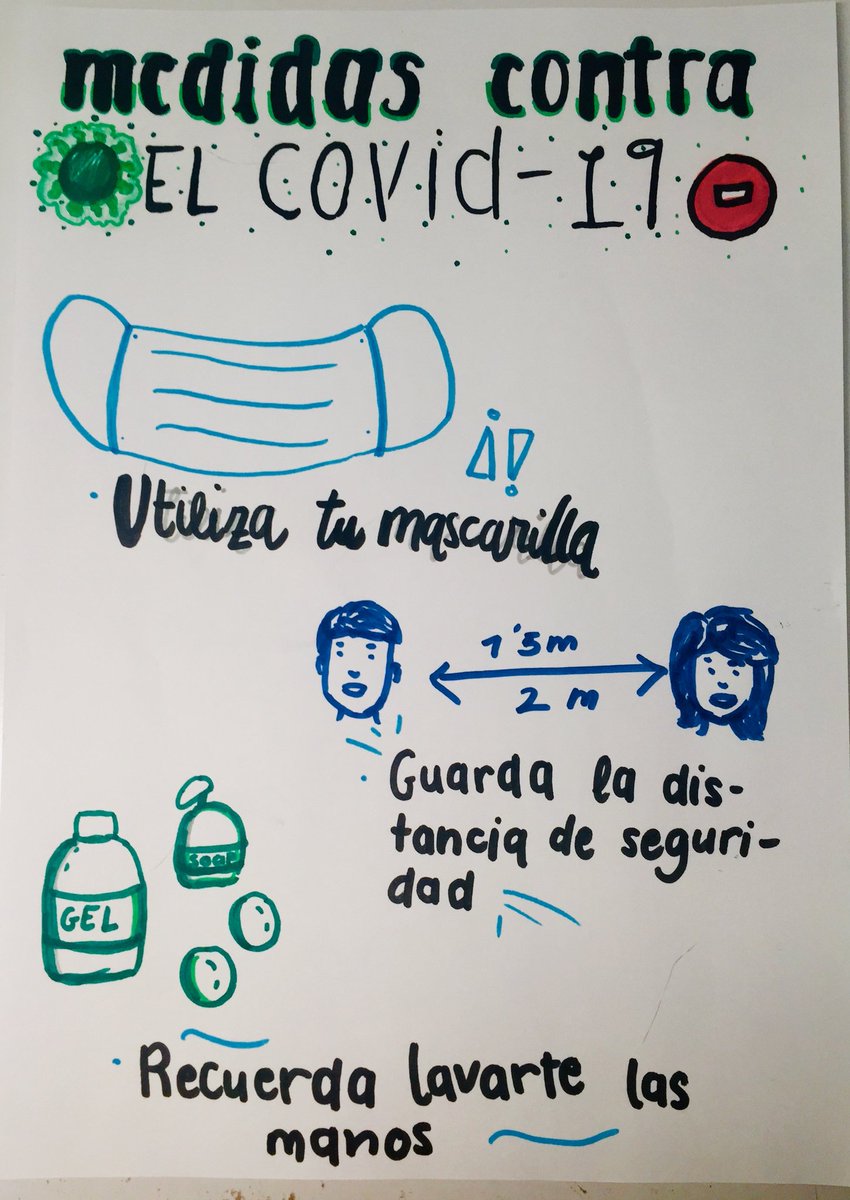 medidas contra
EL COVid-19
¡!
Utiliza tu mascarilla
1'5m
2 m
Guarda la dis-
tancia de seguri-
dad
soap
GEL
Recuerda lavarte las
manos